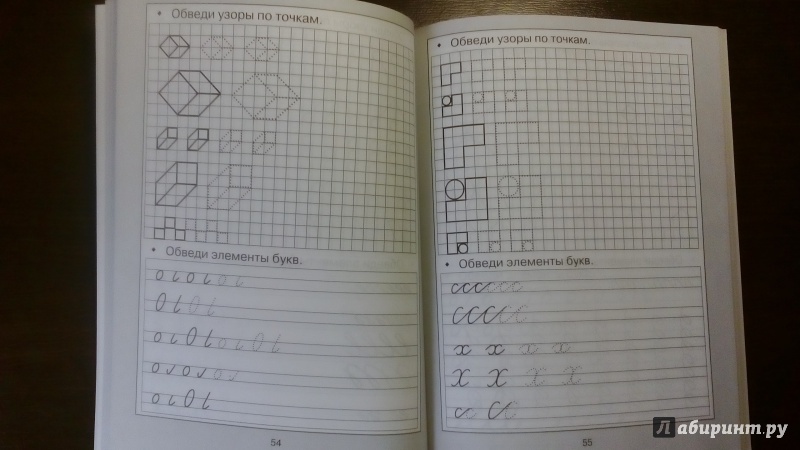 • Обведи узоры по точкам.
• Обведи элементы букв.
54
• Обведи узоры по точкам.
• Обведи элементы букв.
55
Лабиринт.ру